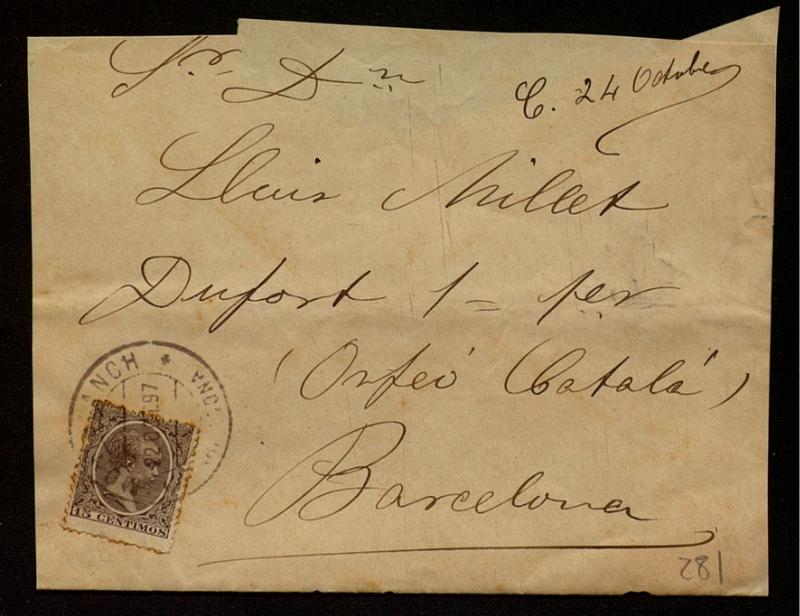 Sr. Dn
C. 24 Octubre
Lluis Millet
Dufort 1 = 1er
(Orfeó Catalá)
Barcelona
ANCH *
97
15 CENTIMOS
281